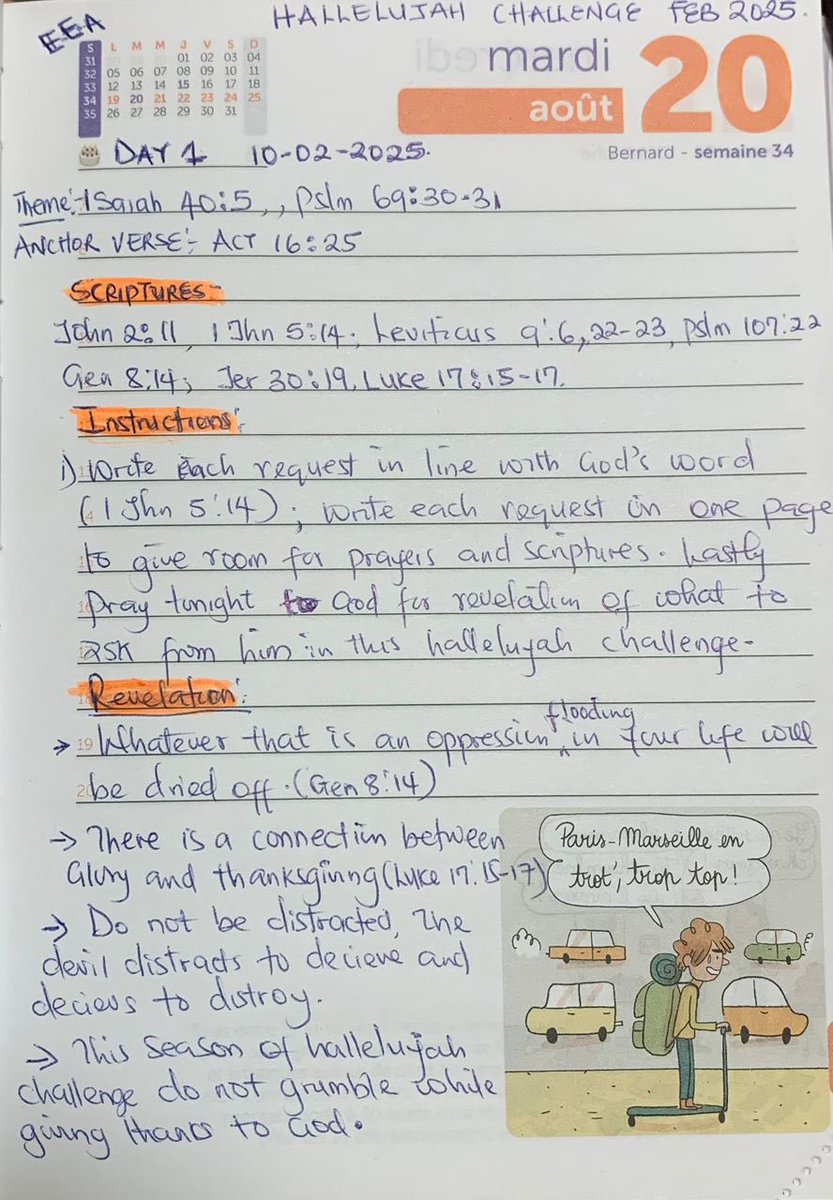 HALLELUJAH CHALLENGE FEB 2025.
EEA
S L M M J V S D
31 01 02 03 04
32 05 06 07 08 09 10 11
33 12 13 14 15 16 17 18
34 19 20 21 22 23 24 25
35 26 27 28 29 30 31
mardi
août
20
Bernard - semaine 34
DAY 1 10-02-2025.
Theme:- Isaiah 40:5,, Pslm 69:30-31
ANCHOR VERSE:- ACT 16:25
SCRIPTURES-
John 2:11, 1 Jhn 5:14; Leviticus 9:6,22-23, Pslm 107:22
Gen 8:14; Jer 30:19, Luke 17:15-17.
Instructions:
i) Write each request in line with God's word
(1 Jhn 5:14); Write each request in one page
to give room for prayers and scriptures. Lastly
pray tonight to God for revelation of what to
ask from him in this hallelujah challenge-
Revelation:
→ 19 Whatever that is an oppression flooding in your life will
be dried off. (Gen 8:14)
→ There is a connection between
Glory and thanksgiving (Luke 17:15-17)
→ Do not be distracted, The
devil distracts to decieve and
decieves to distroy.
→ This Season of hallelujah
challenge do not grumble while
giving thanks to God.
Paris-Marseille en
trot', trop top!